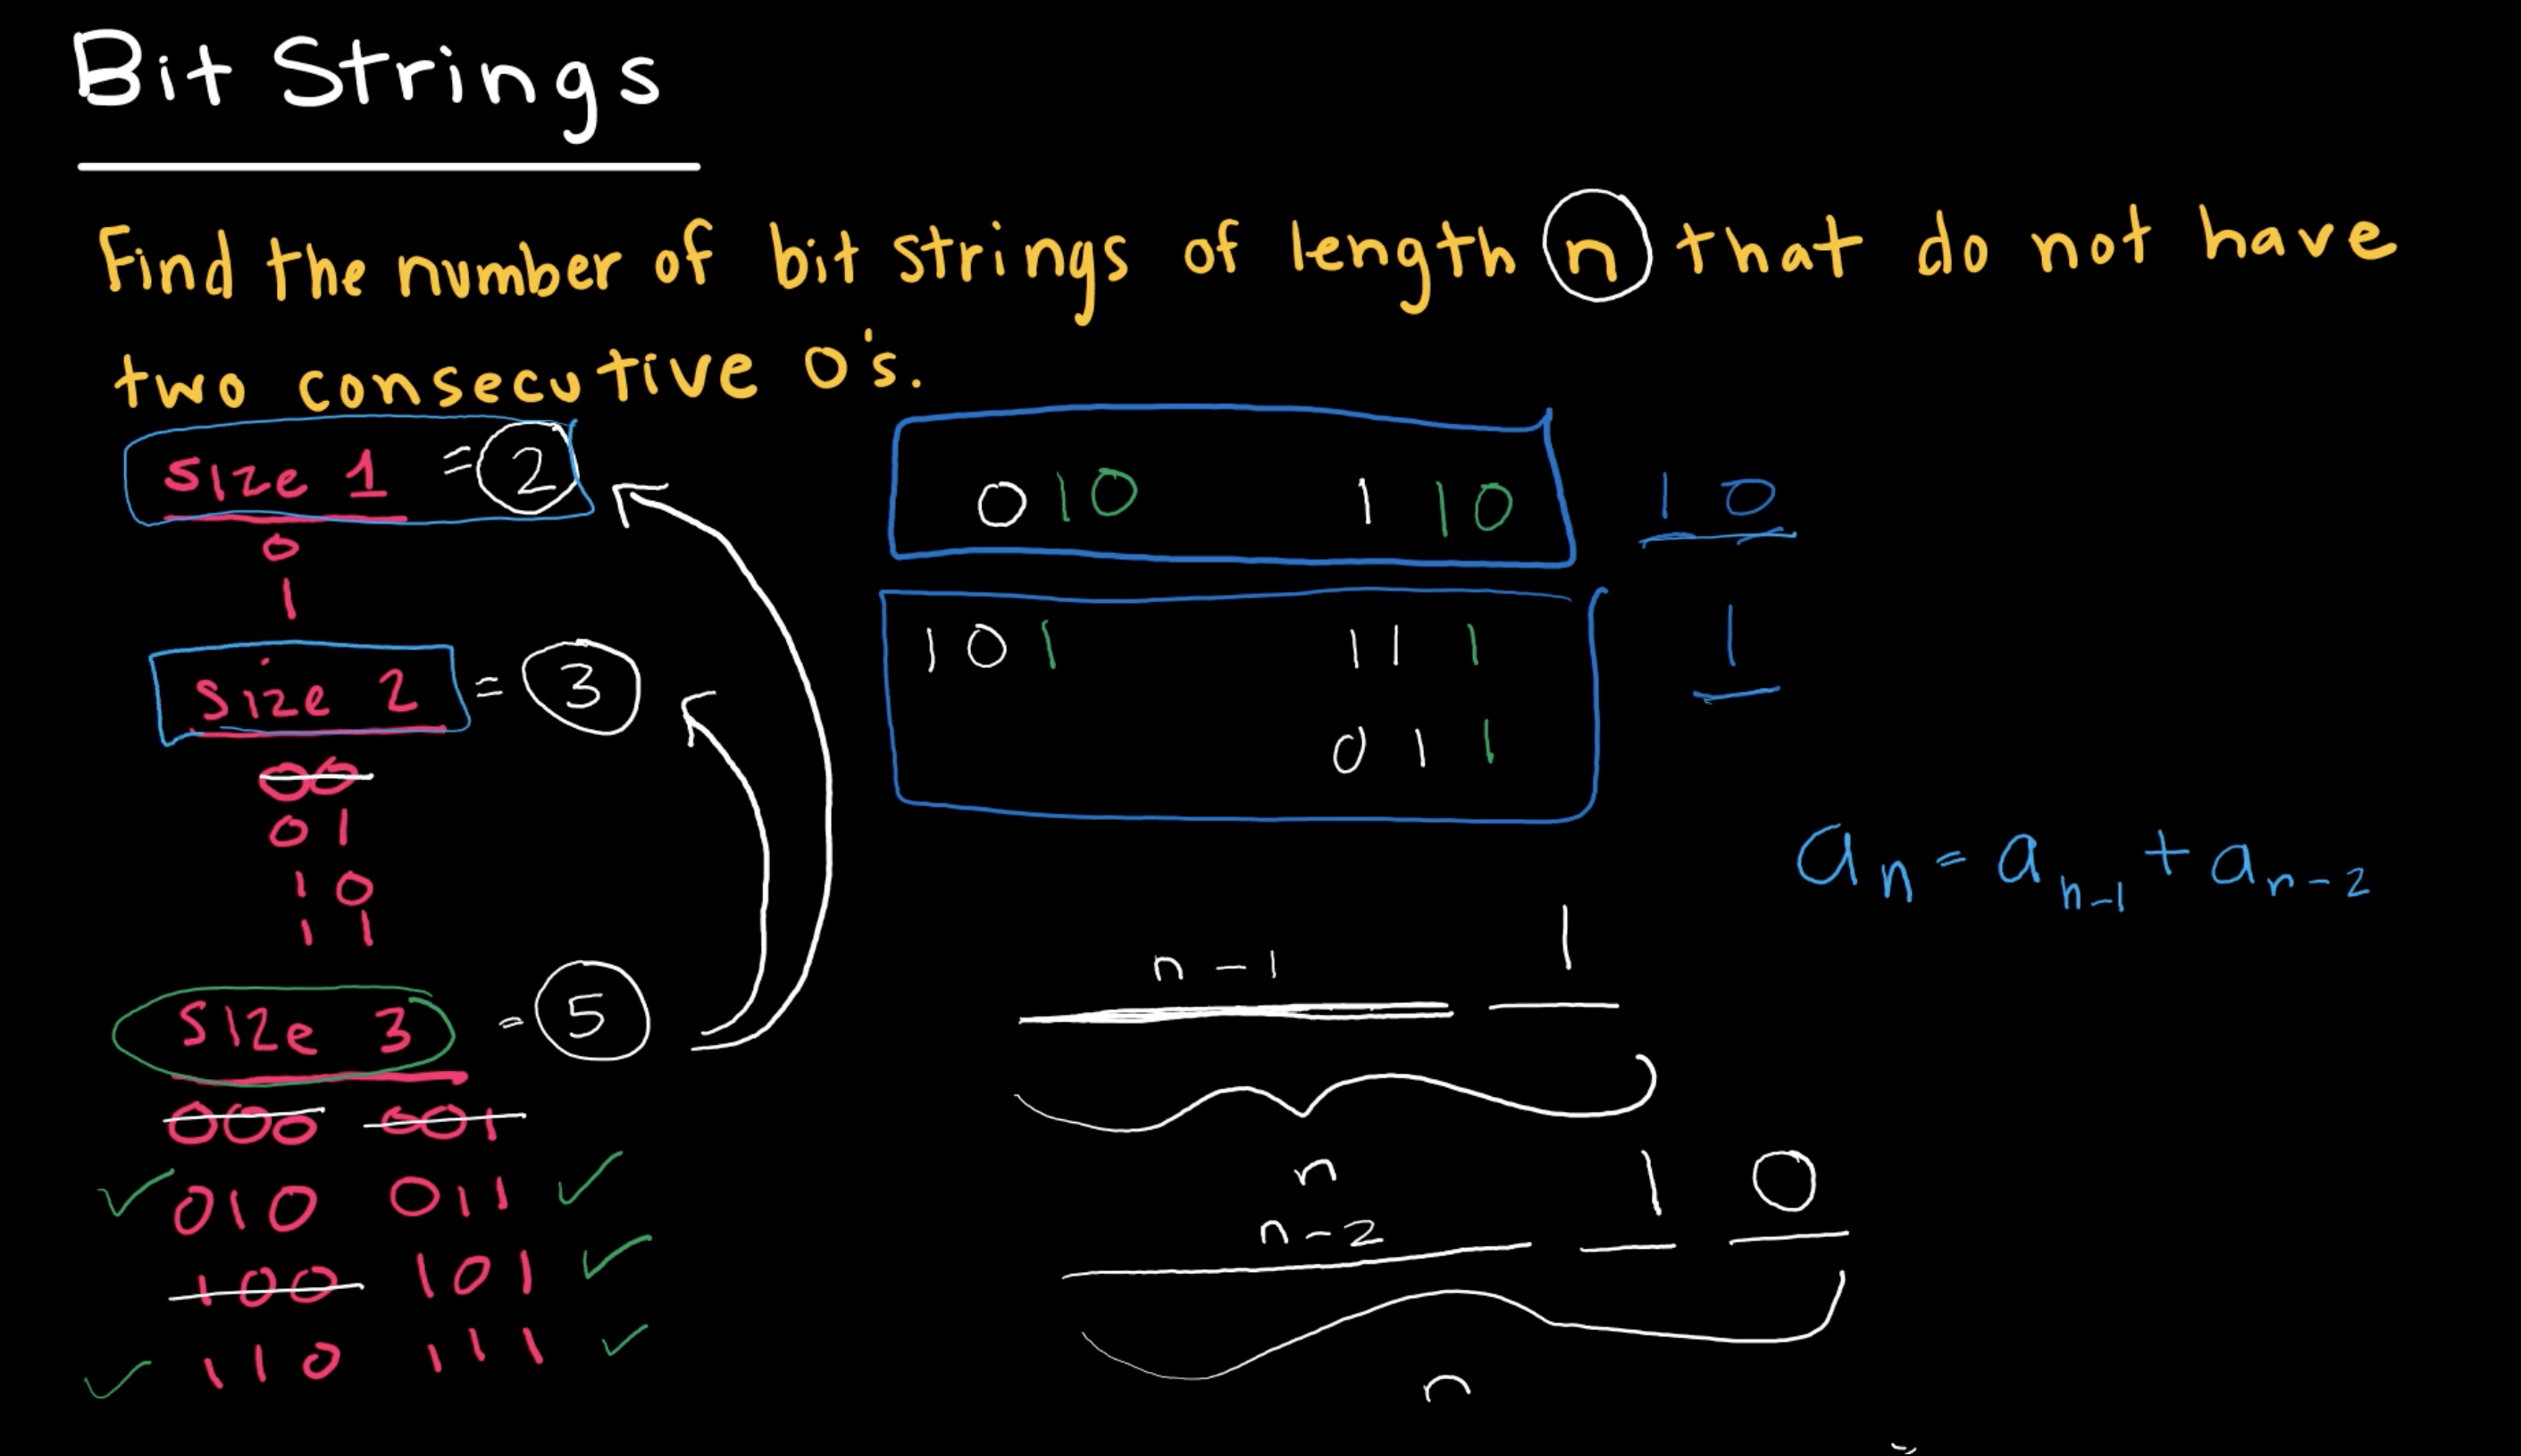 Bit Strings
Find the number of bit strings of length n that do not have
two consecutive 0's.
size 1 = 2
0
1
size 2 = 3
00
01
10
11
size 3 = 5
000 001
010 011
100 101
110 111
010 110 10
101 111 1
011
an = an-1 + an-2
n-1 1
n
n-2 1 0
n